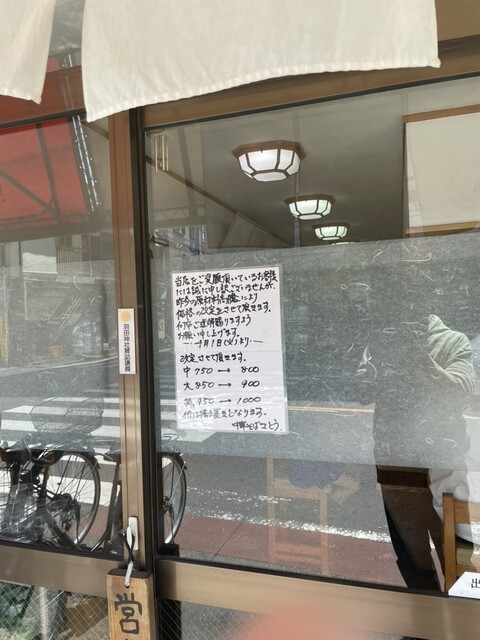 当店をご愛顧頂いているお客様
には誠に申し訳ございませんが、
昨今の原材料高騰により
価格の改定をさせて頂きます。
何卒ご理解賜りますよう
お願い申し上げます。
7月1日(火)より
改定させて頂きます。
中 750 → 800
大 850 → 900
950 → 1000
他は据え置きとなります。
中華そばさとう
羽田神社賛助講員
営
出